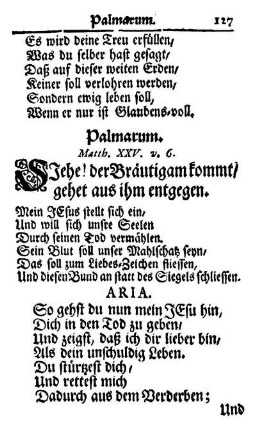 Palmarum. 127
Es wird deine Treu erfüllen/
Was du selber hast gesagt/
Daß auf dieser weiten Erden/
Keiner soll verlohren werden/
Sondern ewig leben soll/
Wenn er nur ist Glaubens-voll.
Palmarum.
Matth. XXV. v. 6.
SIehe! der Bräutigam kommt/
gehet aus ihm entgegen.
Mein JEsus stellt sich ein/
Und will sich unsre Seelen
Durch seinen Tod vermählen.
Sein Blut soll unser Mahlschatz seyn/
Das soll zum Liebes-Zeichen fliessen/
Und diesen Bund an statt des Siegels schliessen.
ARIA.
So gehst du nun mein JESu hin/
Dich in den Tod zu geben/
Und zeigst, daß ich dir lieber bin/
Als dein unschuldig Leben.
Du stürtzest dich/
Und rettest mich
Dadurch aus dem Verderben;
Und